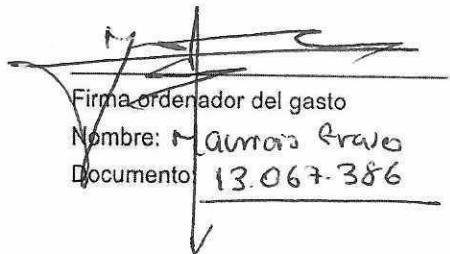 Firma ordenador del gasto
Nombre: Mauricio
Documento 13.067.386